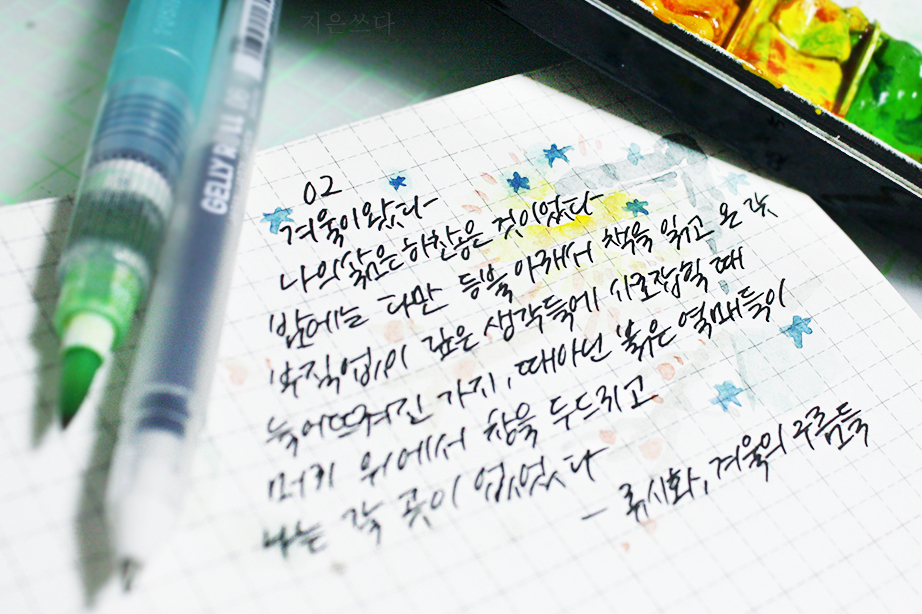 지은쓰다
GELLY ROLL
02
겨울이 왔다-
나의 삶은 하찮은 것이었다-
밤에는 다만 등불 아래서 책을 읽고 온갖
부질없이 깊은 생각들에 사로잡힐 때
늘어뜨려진 가지, 때아닌 붉은 열매들이
머리 위에서 창을 두드리고
나는 갈 곳이 없었다-
- 류시화, 겨울의 구름들